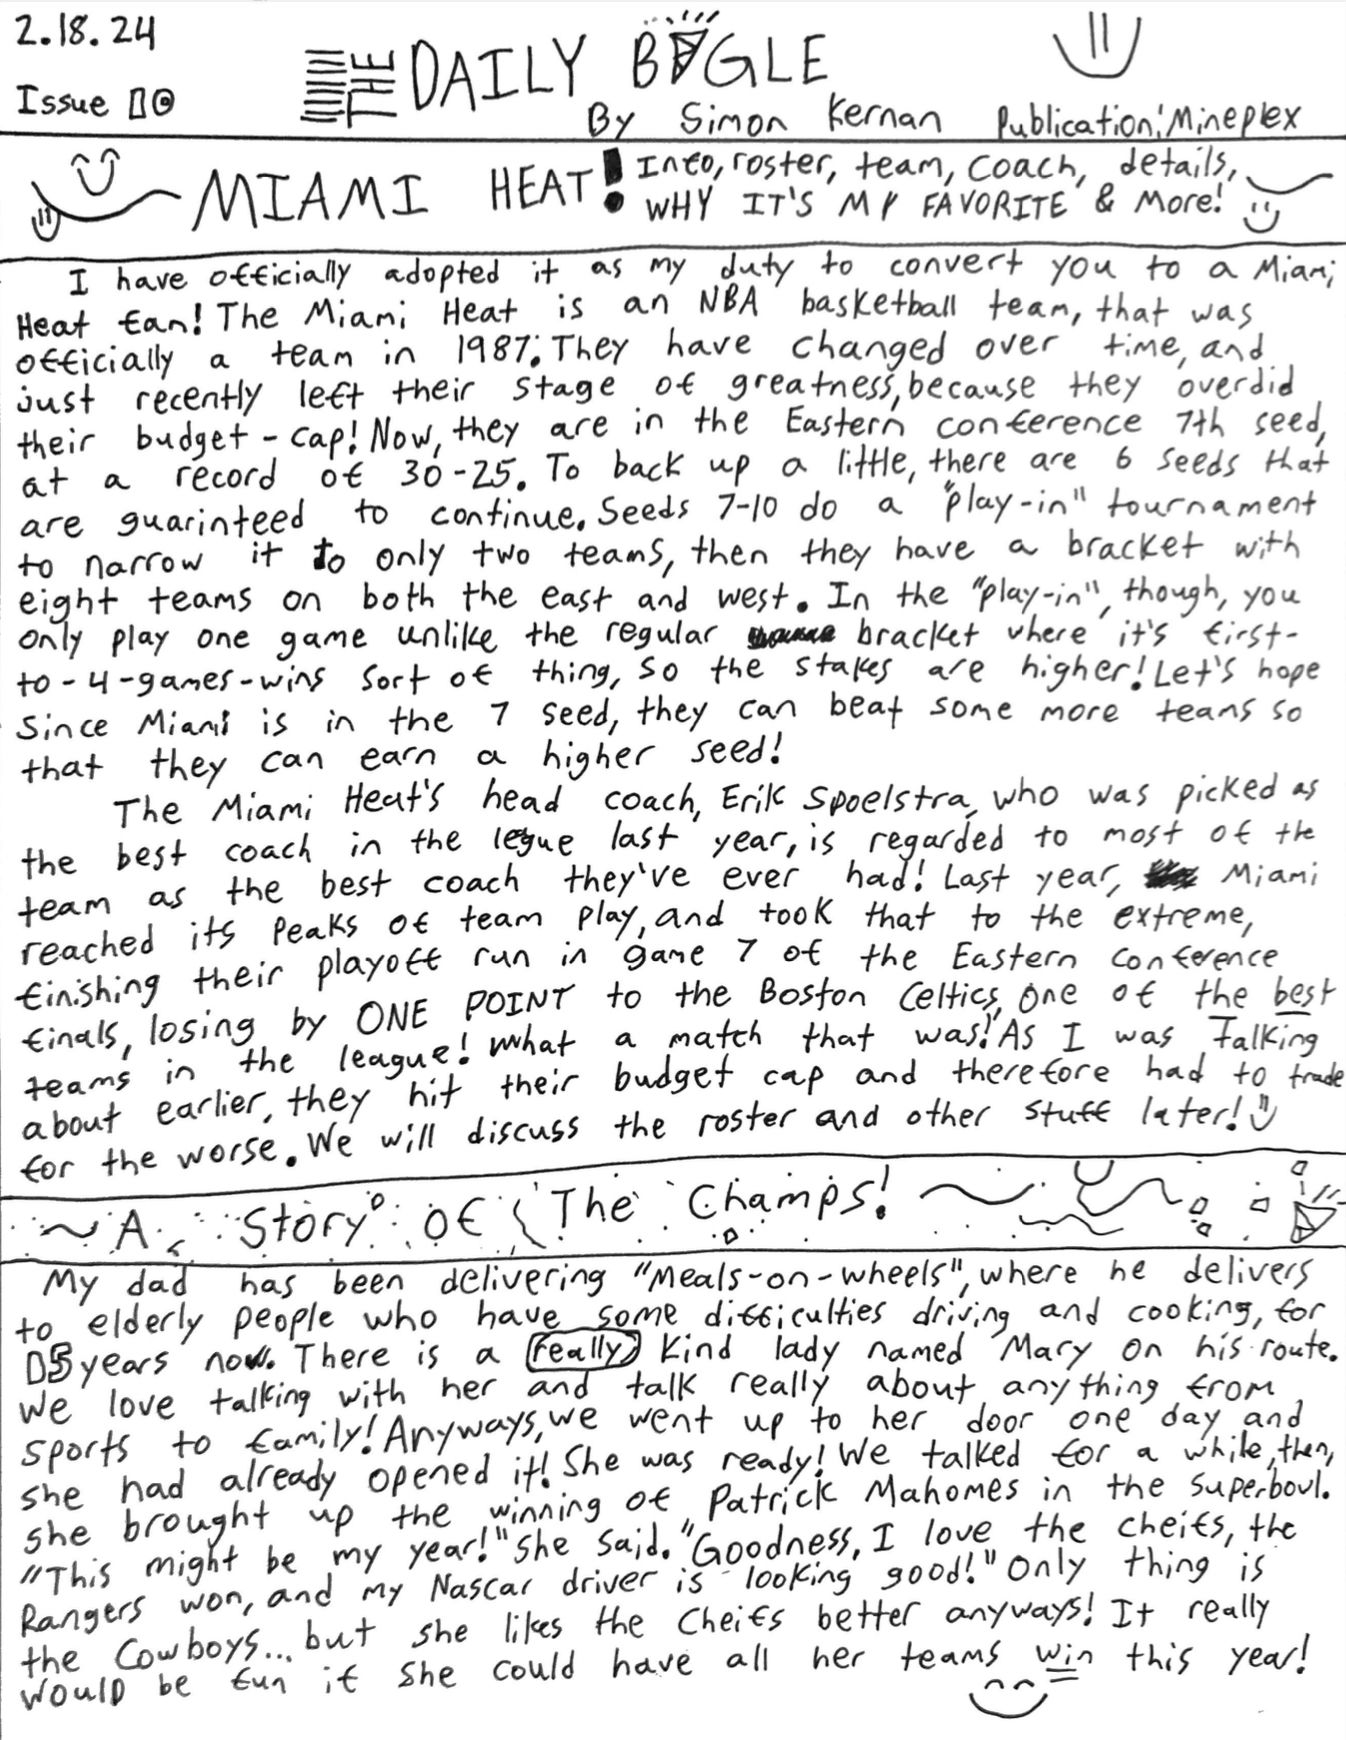 2.18.24
Issue 10
THE DAILY BUGLE
By Simon Kernan Publication: Mineplex
MIAMI HEAT! Info, roster, team, coach, details,
WHY IT'S MY FAVORITE & More!
I have officially adopted it as my duty to convert you to a Miami
Heat fan! The Miami Heat is an NBA basketball team, that was
officially a team in 1987. They have changed over time, and
just recently left their stage of greatness, because they overdid
their budget-cap! Now, they are in the Eastern conference 7th seed,
at a record of 30-25. To back up a little, there are 6 seeds that
are guarinteed to continue. Seeds 7-10 do a "play-in" tournament
to narrow it to only two teams, then they have a bracket with
eight teams on both the east and west. In the "play-in", though, you
only play one game unlike the regular bracket where it's first-
to-4-games-wins sort of thing, so the stakes are higher! Let's hope
since Miami is in the 7 seed, they can beat some more teams so
that they can earn a higher seed!
The Miami Heat's head coach, Erik Spoelstra, who was picked as
the best coach in the legue last year, is regarded to most of the
team as the best coach they've ever had! Last year, Miami
reached its peaks of team play, and took that to the extreme,
finishing their playoff run in game 7 of the Eastern Conference
finals, losing by ONE POINT to the Boston Celtics, one of the best
teams in the league! What a match that was! As I was talking
about earlier, they hit their budget cap and therefore had to trade
for the worse. We will discuss the roster and other stuff later!
~ A Story of The Champs!
My dad has been delivering "Meals-on-wheels", where he delivers
to elderly people who have some difficulties driving and cooking, for
15 years now. There is a really kind lady named Mary on his route.
We love talking with her and talk really about anything from
sports to family! Anyways, we went up to her door one day and
she had already opened it! She was ready! We talked for a while, then,
she brought up the winning of Patrick Mahomes in the superbowl.
"This might be my year!" she said. "Goodness, I love the cheifs, the
Rangers won, and my Nascar driver is looking good!" Only thing is
the Cowboys... but she likes the Cheifs better anyways! It really
would be fun if she could have all her teams win this year!